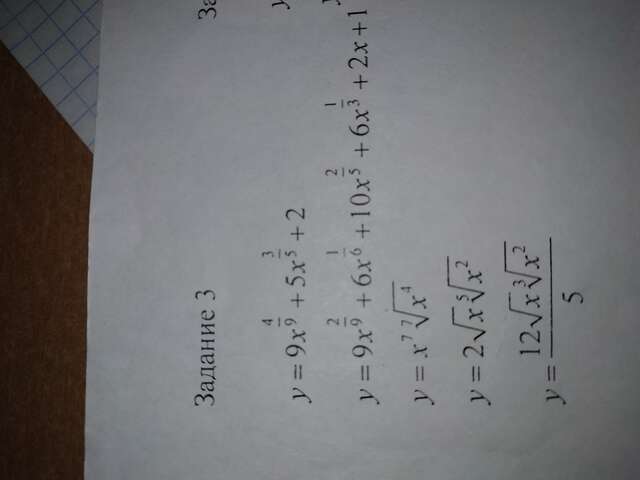 Задание 3
За
y = 9x^{4/9} + 5x^{3/5} + 2
y = 9x^{2/9} + 6x^{1/6} + 10x^{2/5} + 6x^{1/3} + 2x + 1
y = x^7 \sqrt[7]{x^4}
y = 2\sqrt{x}\sqrt[5]{x^2}
y = \frac{12\sqrt{x}\sqrt[3]{x^2}}{5}